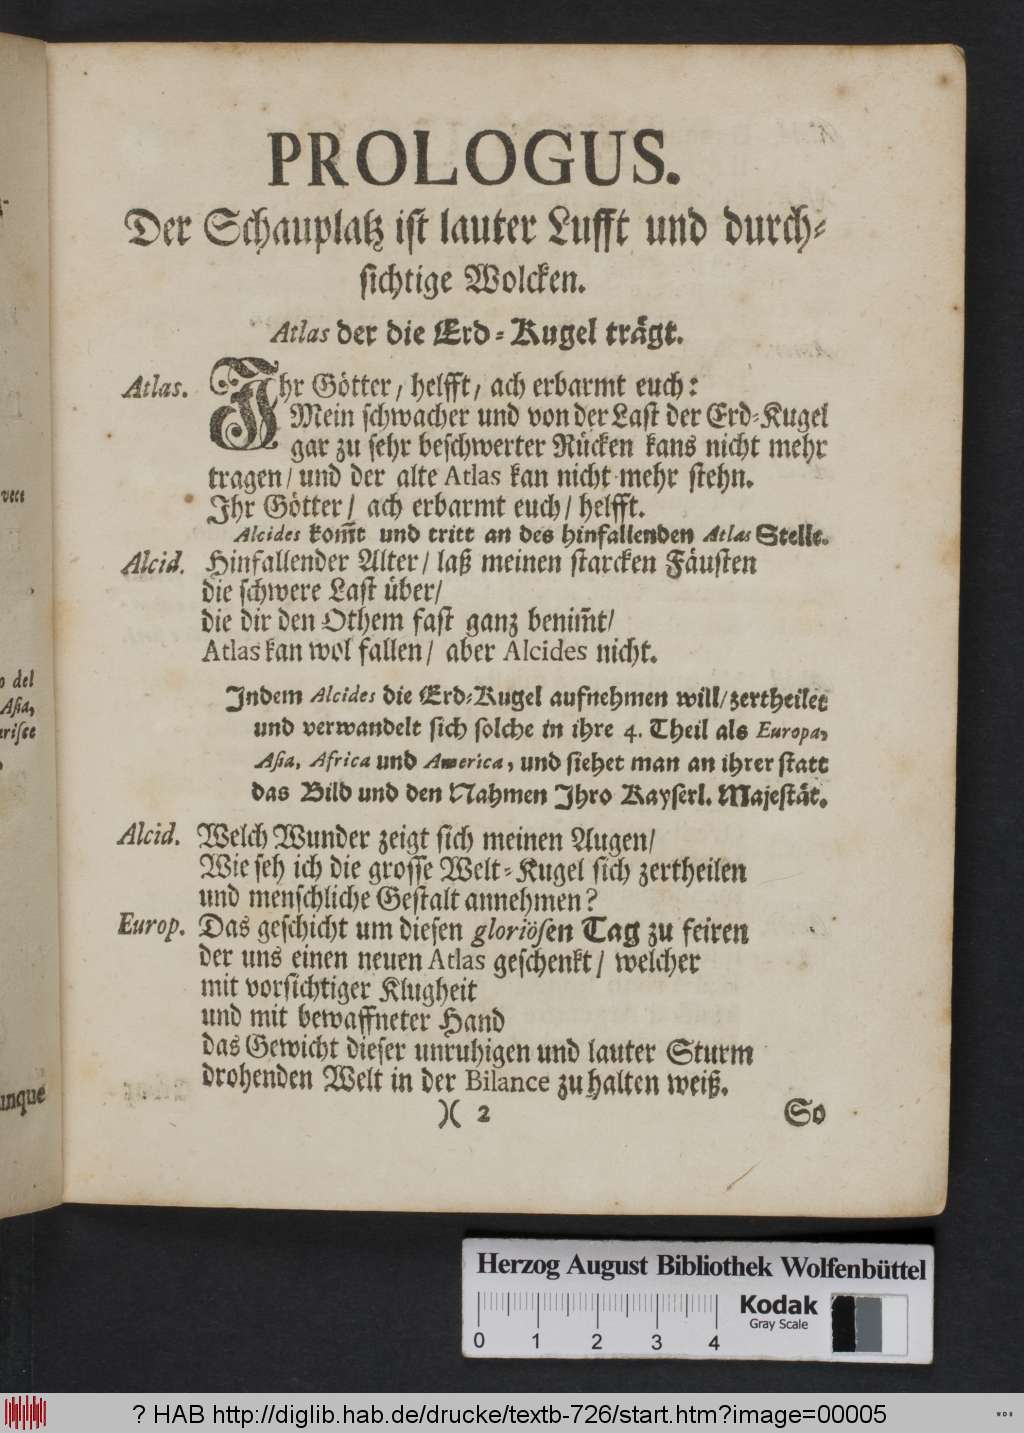 PROLOGUS.
Der Schauplatz ist lauter Lufft und durch-
sichtige Wolcken.
Atlas der die Erd-Kugel trägt.
Atlas. Ihr Götter/ helfft/ ach erbarmt euch:
Mein schwacher und von der Last der Erd-Kugel
gar zu sehr beschwerter Rücken kans nicht mehr
tragen/ und der alte Atlas kan nicht mehr stehn.
Ihr Götter/ ach erbarmt euch/ helfft.
Alcides kom̄t und tritt an des hinfallenden Atlas Stelle.
Alcid. Hinfallender Alter/ laß meinen starcken Fäusten
die schwere Last über/
die dir den Othem fast ganz benim̄t/
Atlas kan wol fallen/ aber Alcides nicht.
Indem Alcides die Erd-Kugel aufnehmen will/ zertheilet
und verwandelt sich solche in ihre 4. Theil als Europa,
Asia, Africa und America, und siehet man an ihrer statt
das Bild und den Nahmen Ihro Kayserl. Majestät.
Alcid. Welch Wunder zeigt sich meinen Augen/
Wie seh ich die grosse Welt-Kugel sich zertheilen
und menschliche Gestalt annehmen?
Europ. Das geschicht um diesen gloriösen Tag zu feiren
der uns einen neuen Atlas geschenkt/ welcher
mit vorsichtiger Klugheit
und mit bewaffneter Hand
das Gewicht dieser unruhigen und lauter Sturm
drohenden Welt in der Bilance zu halten weiß.
)( 2 So
del
Asia,
unque
Herzog August Bibliothek Wolfenbüttel
0 1 2 3 4
Kodak
Gray Scale
? HAB http://diglib.hab.de/drucke/textb-726/start.htm?image=00005